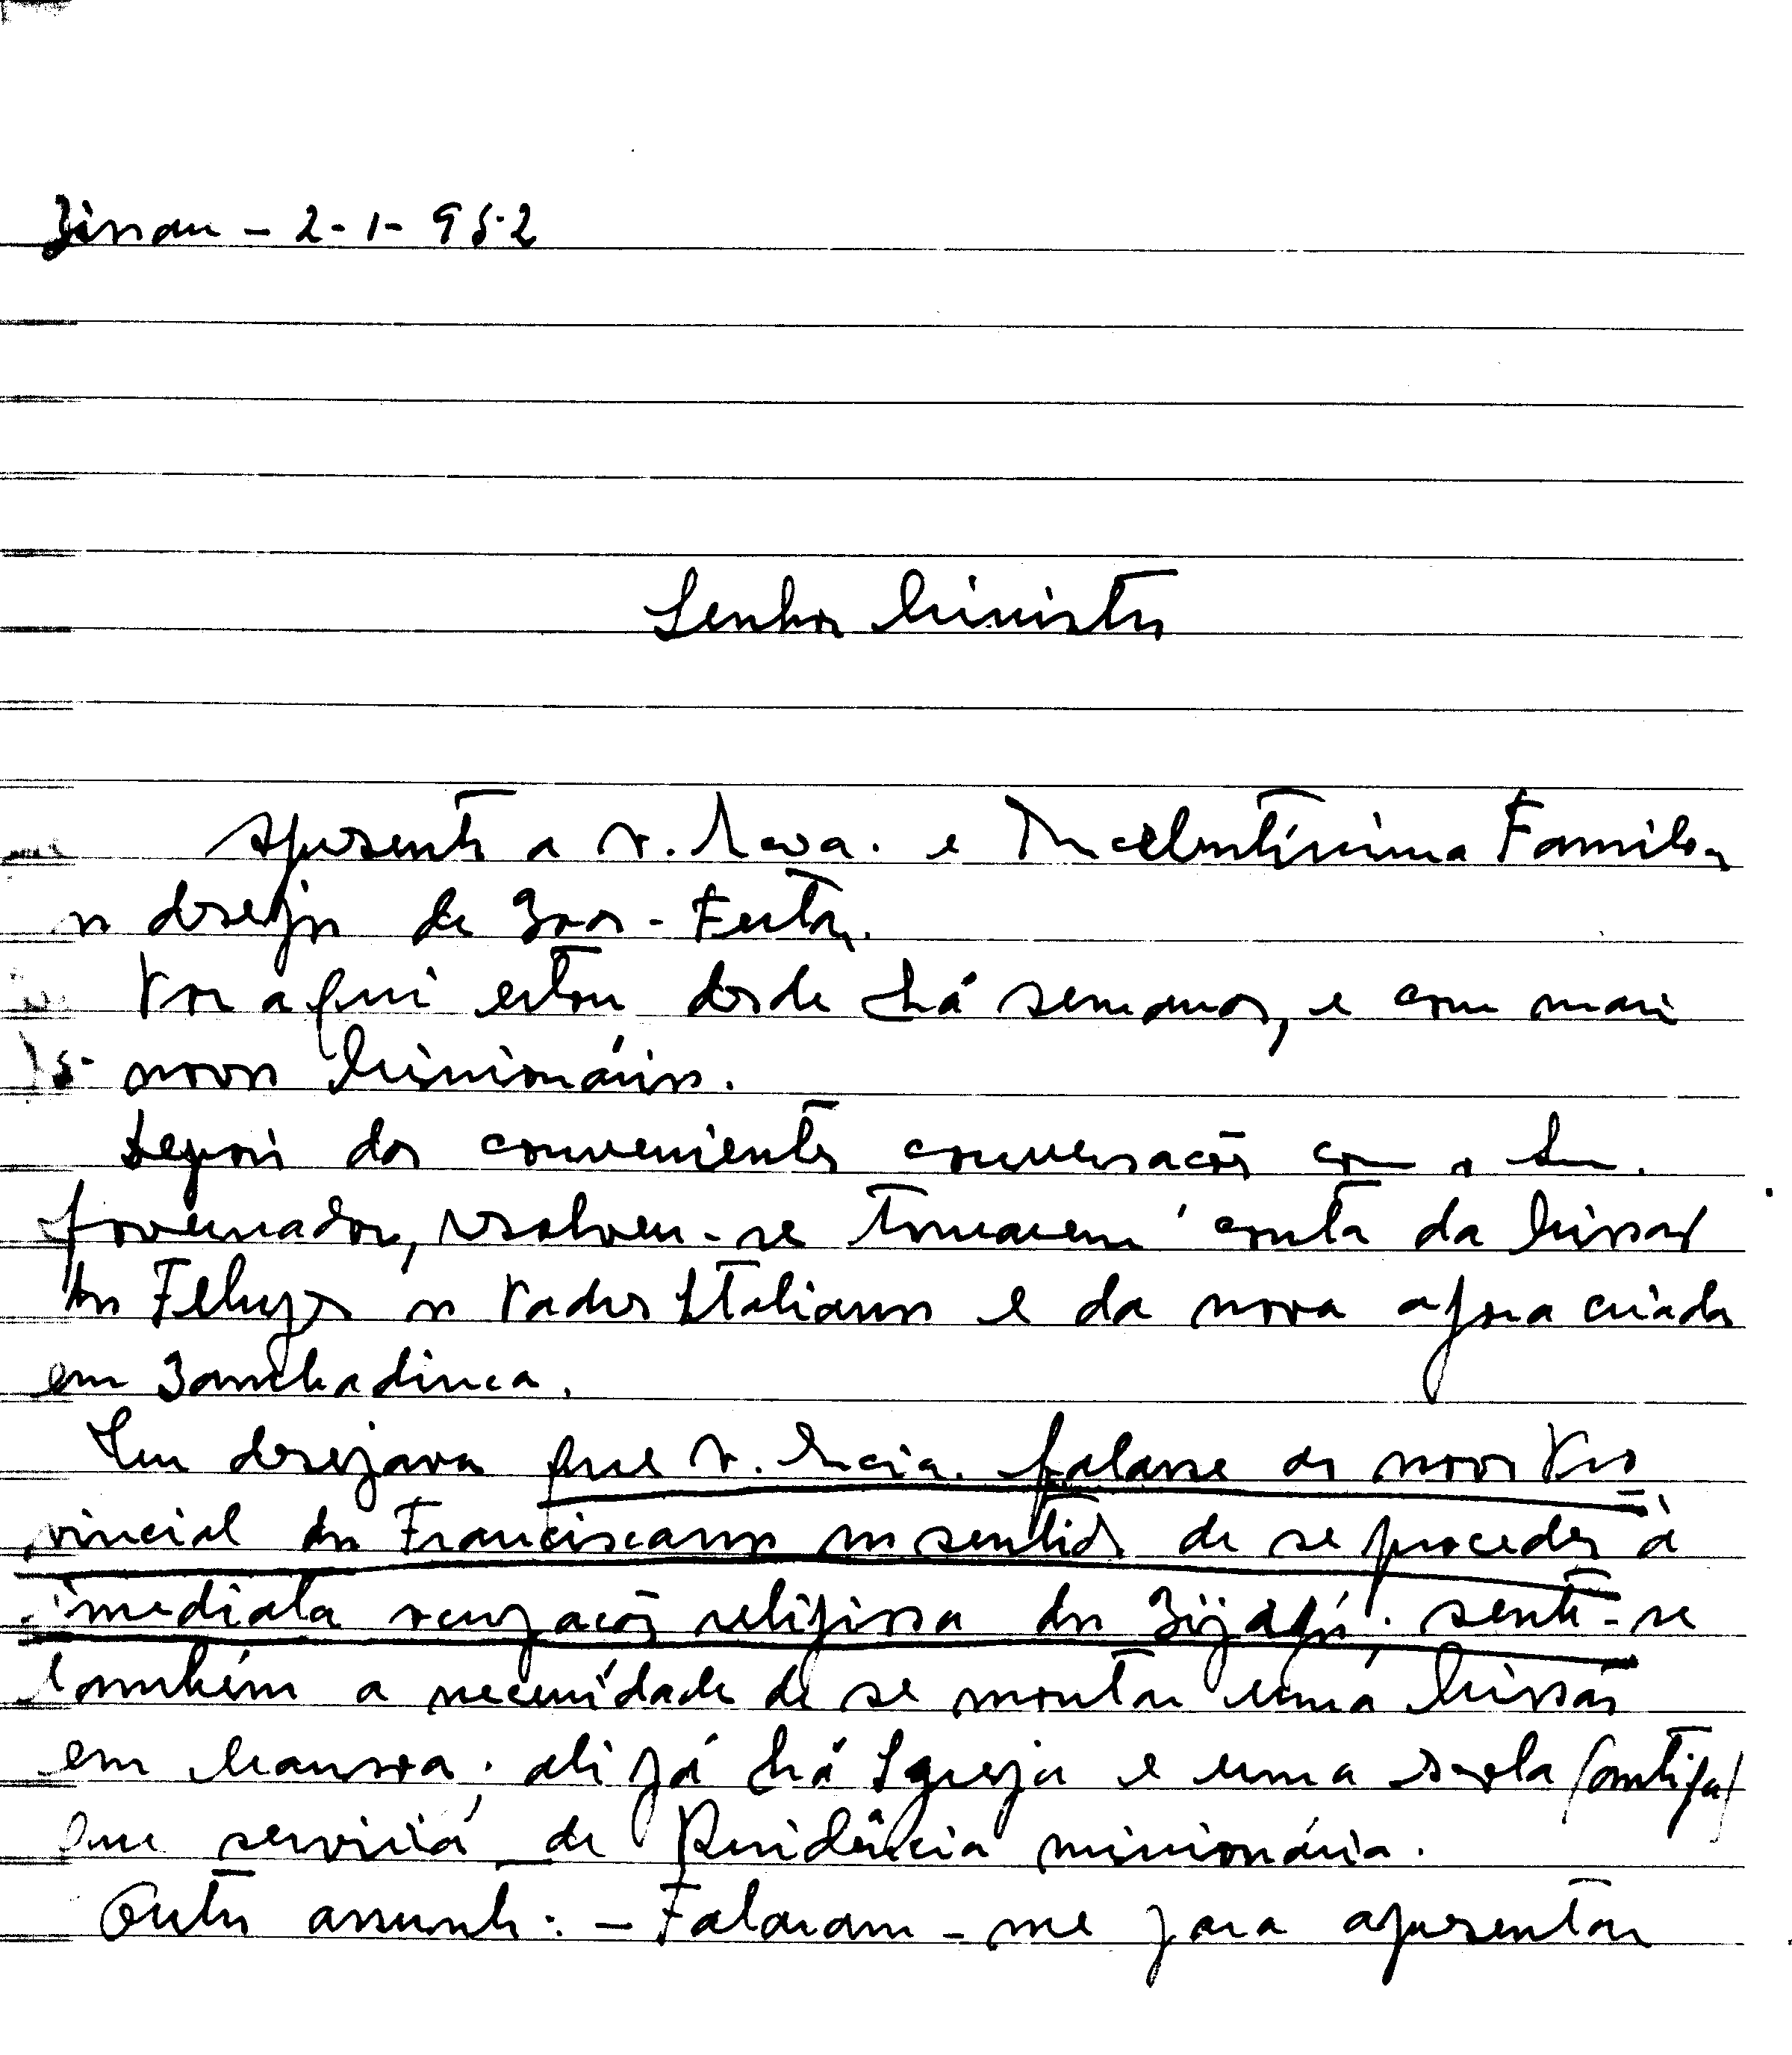 Bissau - 2-1-952
Senhor Ministro
Apresento a V. Exa. e Excelentíssima Família
os desejos de Boas-Festas.
Por aqui estou desde há semanas, e com mais
novos Missionários.
Depois das convenientes conversações com o Sr.
Governador, resolveu-se tomarem conta da Missão
dos Felupes os Padres Italianos e da nova agora criada
em Bambadinca.
Eu desejava que V. Excia. falasse ao novo Pro
vincial dos Franciscanos no sentido de se proceder à
imediata ocupação religiosa dos Bijagós; sente-se
também a necessidade de se montar uma Missão
em Mansoa; ali já há Igreja e uma escola (antiga)
que servirá de Residência missionária.
Outro assunto: - Falaram-me para apresentar